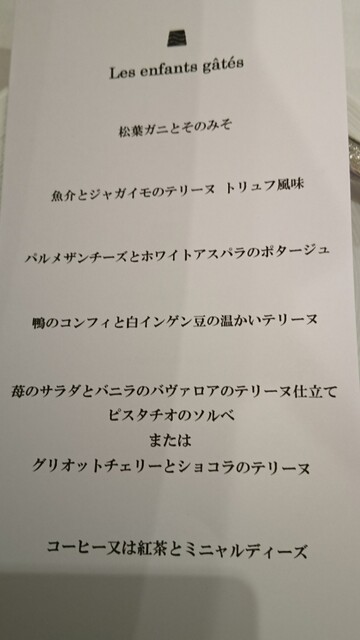 Les enfants gâtés
松葉ガニとそのみそ
魚介とジャガイモのテリーヌ トリュフ風味
パルメザンチーズとホワイトアスパラのポタージュ
鴨のコンフィと白インゲン豆の温かいテリーヌ
苺のサラダとバニラのバヴァロアのテリーヌ仕立て
ピスタチオのソルベ
または
グリオットチェリーとショコラのテリーヌ
コーヒー又は紅茶とミニャルディーズ